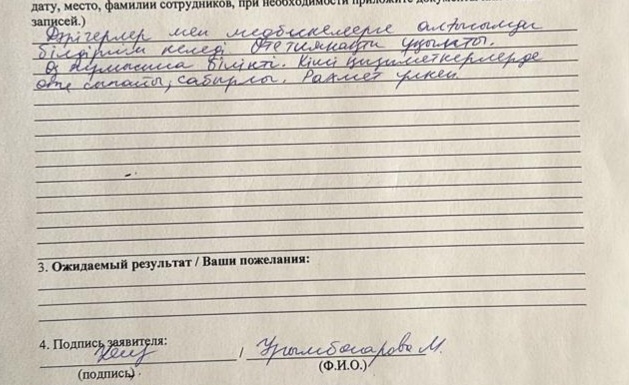 дату, место, фамилии сотрудников, при необходимости приложите
записей.)
Дәрігерлер мен медбикелерге алғысымды
білдіргім келеді. Өте
өз жұмысына білікті. Кіші қызметкерлерде
өте сыпайы, сабырлы. Рахмет үлкен.
3. Ожидаемый результат / Ваши пожелания:
4. Подпись заявителя:
/ М.
(подпись) (Ф.И.О.)